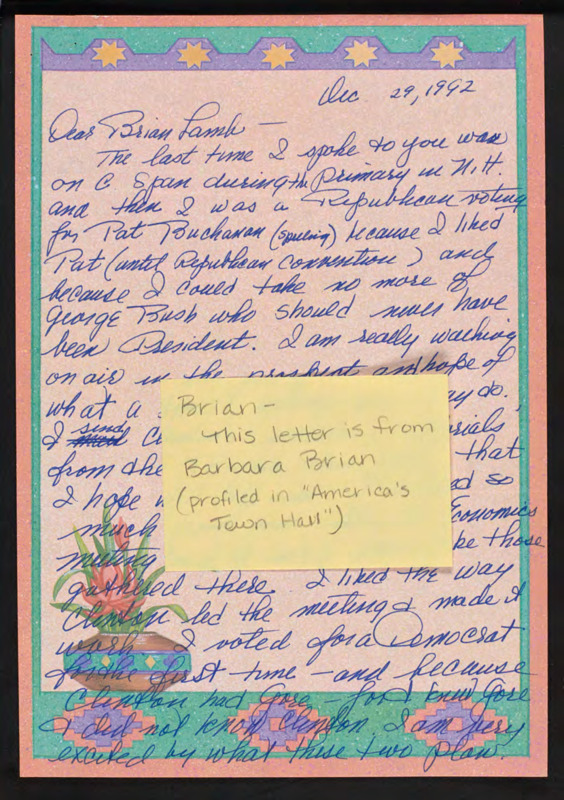 Dec 29, 1992
Dear Brian Lamb —
The last time I spoke to you was
on C Span during the Primary in N.H.
and then I was a Republican voting
for Pat Buchanan (spelling) because I liked
Pat (until Republican convention) and
because I could take no more of
George Bush who should never have
been President. I am really walking
on air in the prospect and hope of
what a
ay do.
I send
rials
from the
that
I hope
ed so
much
Economics
meeting
be those
gathered there. I liked the way
Clinton led the meeting & made it
work. I voted for a Democrat
for the first time – and because
Clinton had Gore – for I knew Gore
I did not know Clinton. I am very
excited by what these two plan.
Brian-
This letter is from
Barbara Brian
(profiled in "America's
Town Hall")